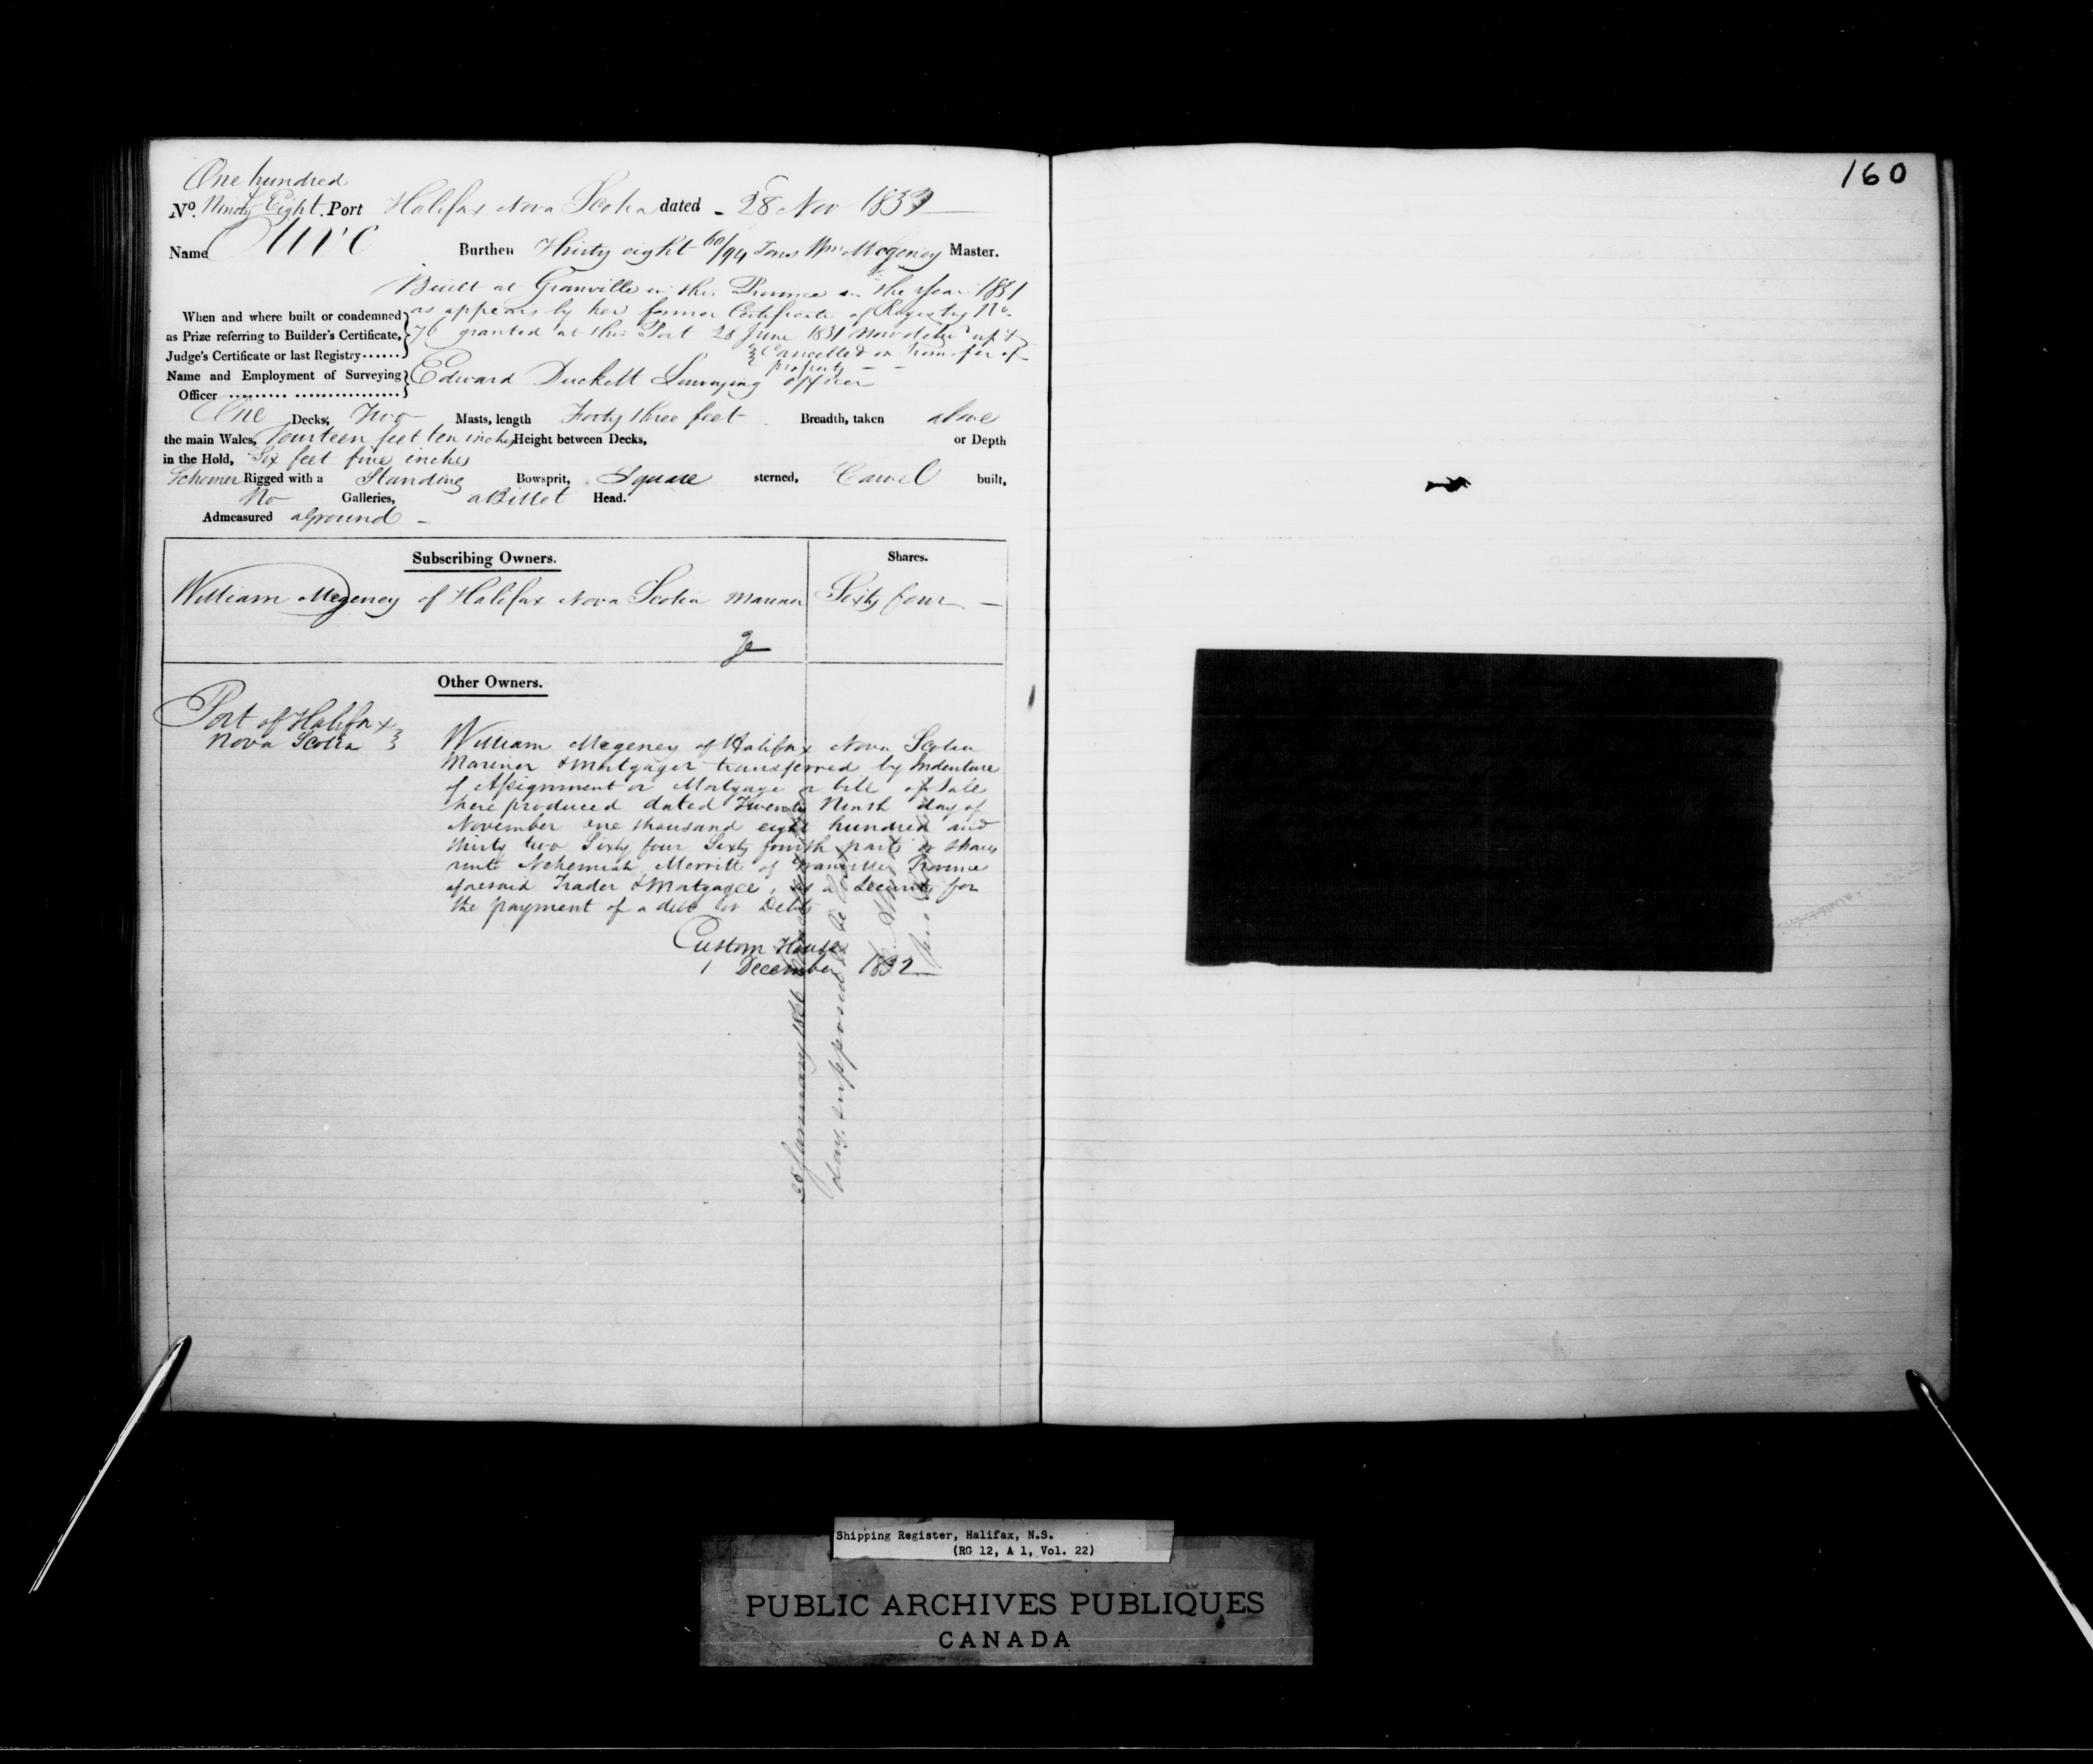 160
One hundred
No. Ninety Eight. Port Halifax Nova Scotia dated - 28 Nov 1833
Name Olive Burthen Thirty eight 60/94 Tons Wm Megeney Master.
Built at Granville in this Province in the Year 1831
When and where built or condemned as appears by her former Certificate of Registry No.
as Prize referring to Builder's Certificate, 76 granted at this Port 28 June 1831 now
Judge's Certificate or last Registry...... Cancelled on transfer of
property
Name and Employment of Surveying Edward Duckett Surveying officer
Officer ......... ..................
One Decks, Two Masts, length Forty three feet Breadth, taken above
the main Wales, Fourteen feet ten inches Height between Decks, or Depth
in the Hold, Six feet five inches
Schooner Rigged with a Standing Bowsprit, Square sterned, Carvel built,
No Galleries, a Billet Head.
Admeasured aground -
Subscribing Owners. Shares.
William Megeney of Halifax Nova Scotia Mariner Sixty four —
Other Owners.
Port of Halifax
Nova Scotia
William Megeney of Halifax Nova Scotia
Mariner & Mortgager transferred by Indenture
of Assignment or Mortgage or bill of Sale
here produced dated Twenty Ninth day of
November one thousand eight hundred and
thirty two Sixty four Sixty fourth parts or shares
unto Nehemiah Merritt of Granville Province
aforesaid Trader & Mortgagee, as a Security for
the payment of a debt or Debts
Custom House
1 December 1832
28 January 1866
day, supposed to be lost
Shipping Register, Halifax, N.S.
(RG 12, A 1, Vol. 22)
PUBLIC ARCHIVES PUBLIQUES
CANADA